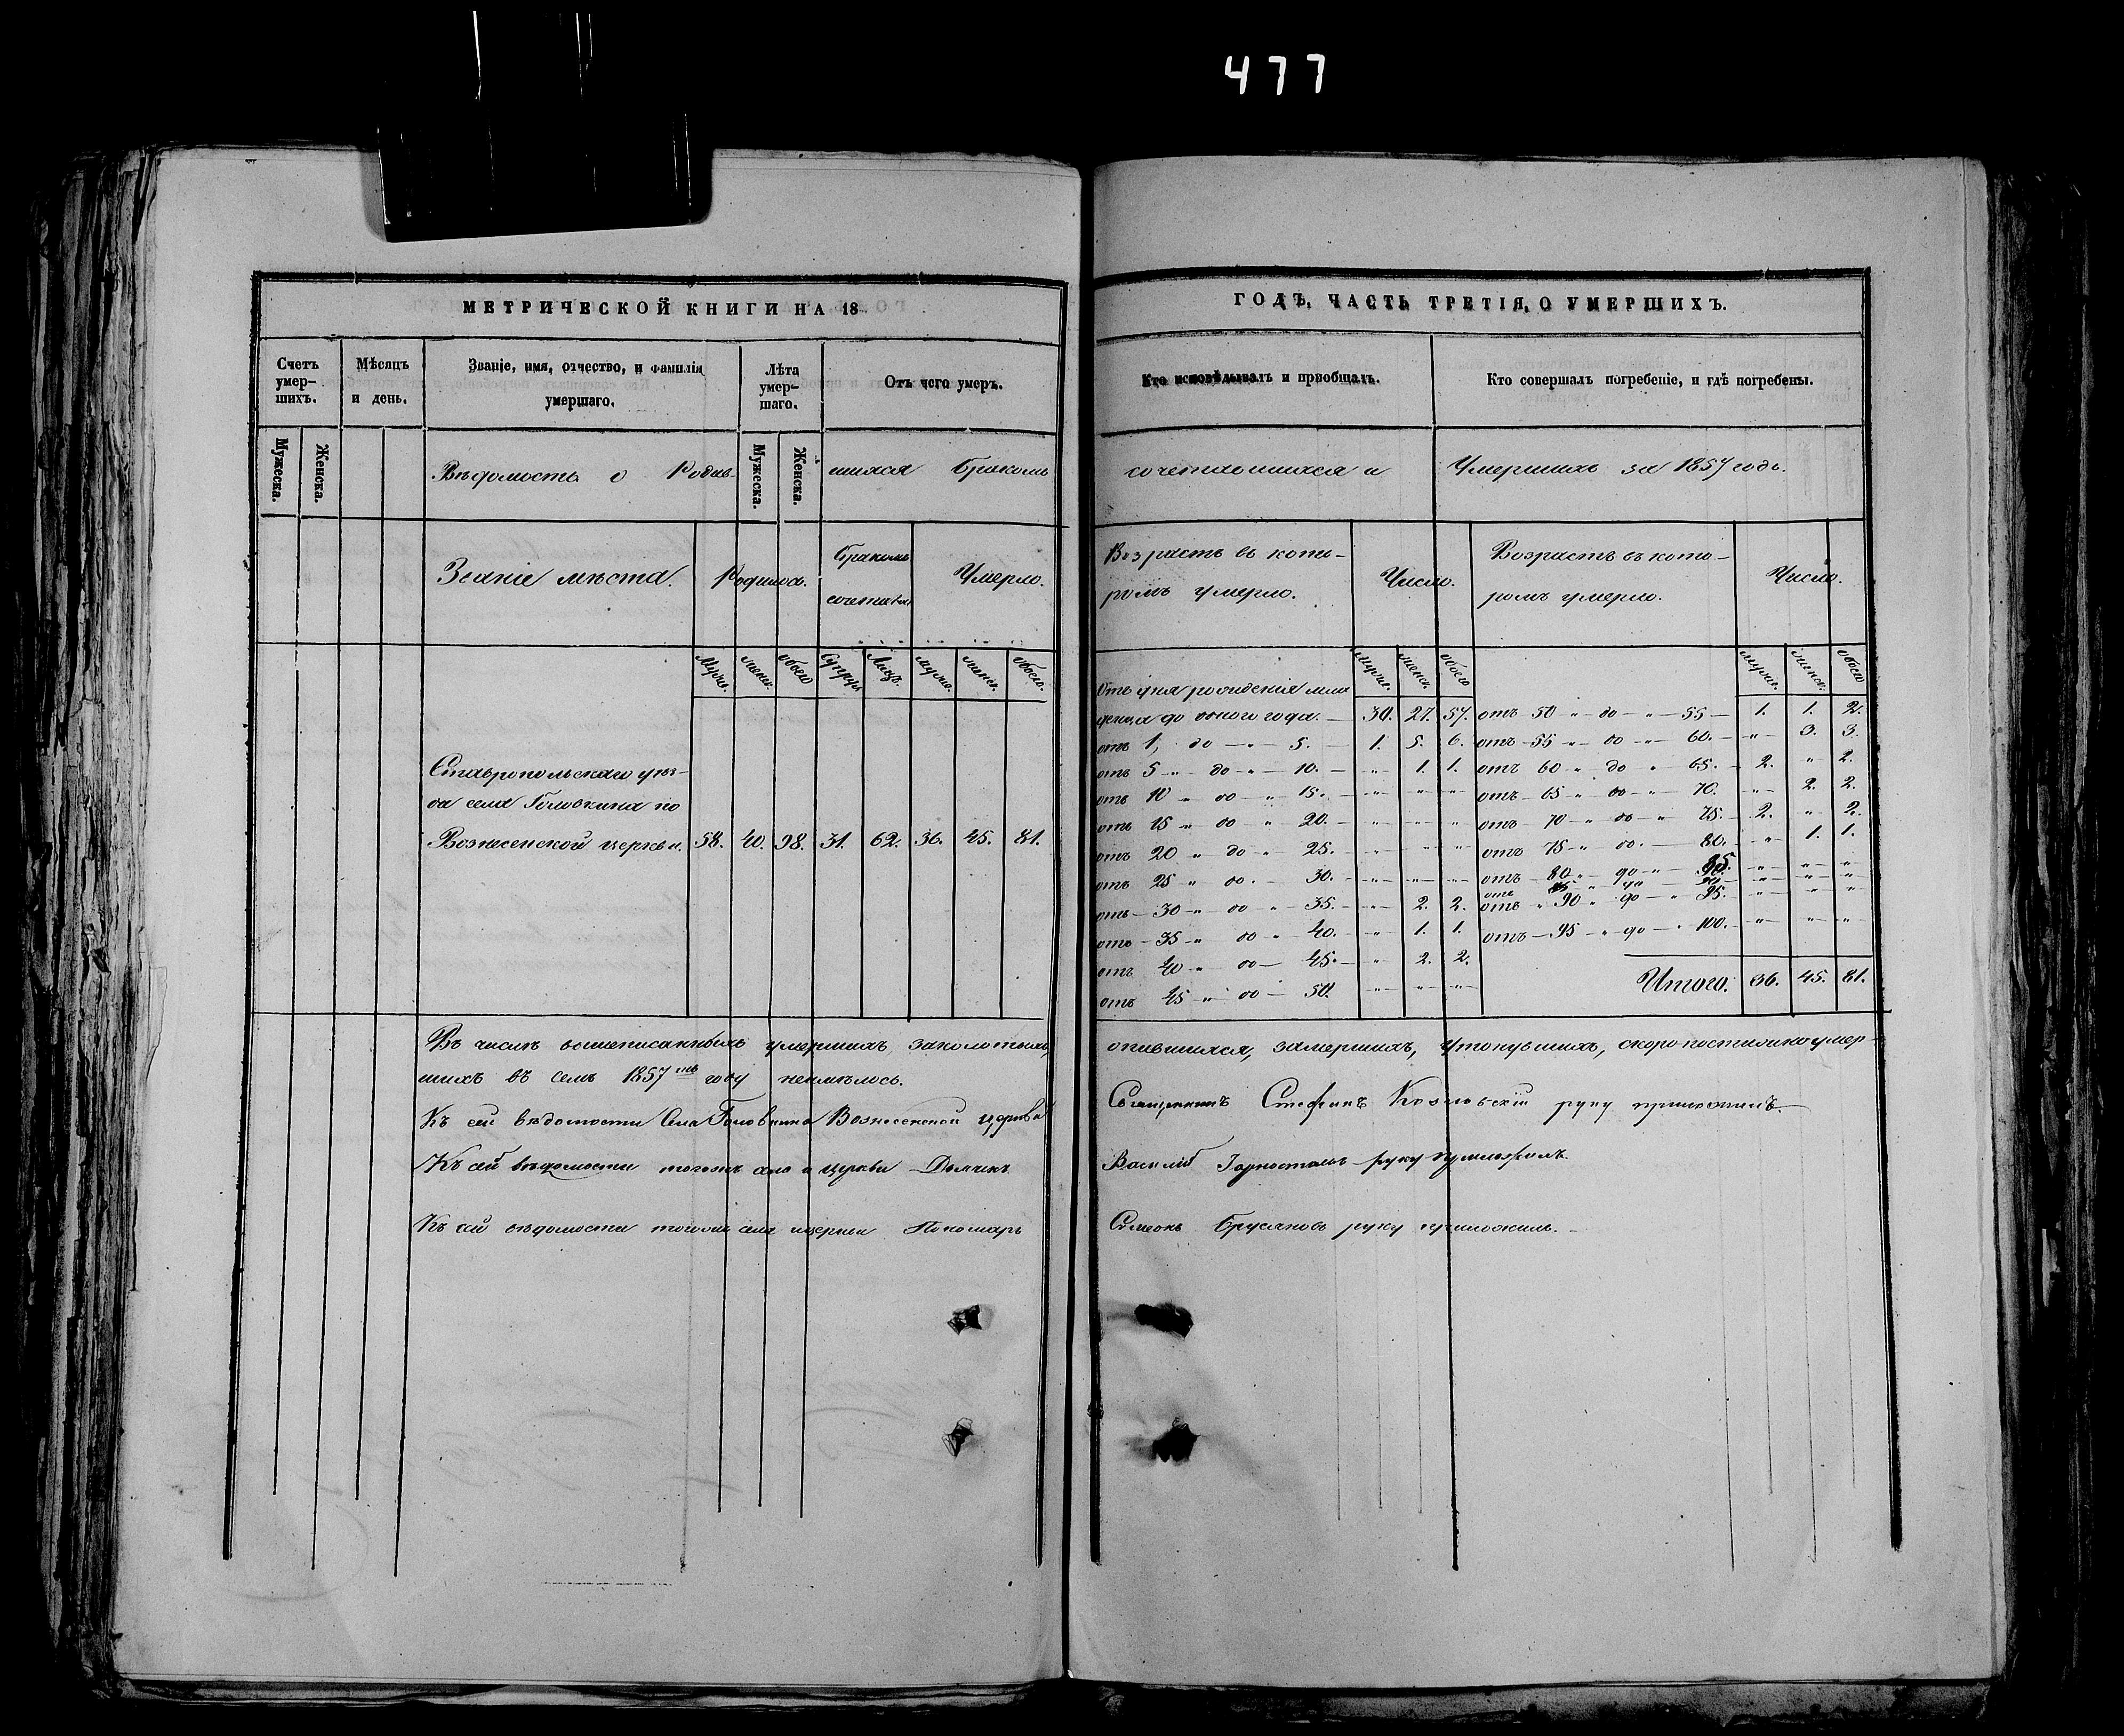 477
МЕТРИЧЕСКОЙ КНИГИ НА 18
ГОДЪ, ЧАСТЬ ТРЕТІЯ, О УМЕРШИХЪ.
Счетъ умер-
шихъ.
Мѣсяцъ
и день.
Званіе, имя, отчество, и фамилія
умершаго.
Лѣта
умер-
шаго.
Отъ чего умеръ.
Кто исповѣдывалъ и пріобщалъ.
Кто совершалъ погребеніе, и гдѣ погребены.
Мужеска.
Женска.
Мужеска.
Женска.
Вѣдомость о Родив-
шихся бракомъ
сочетавшихся и
Умершихъ за 1857 годъ.
Званіе мѣста.
Родилось.
Бракомъ
Умерло.
Возрастъ въ кото-
ромъ умерло.
Число.
Возрастъ въ кото-
ромъ умерло.
Число.
Муж. женс. обоего Супруж. Лицъ. муж. женс. обоего.
муж. женс. обоего
муж. женс. обоего
Ставропольскаго уѣз-
да села Головкина по
Вознесенской церкви. 58. 40. 98. 31. 62. 36. 45. 81.
Отъ дня рожденія мла
денца до одного года. — 30. 27. 57.
отъ 1, до — " — 5. — 1. 5. 6.
отъ 5 — " до — " — 10. — " 1. 1.
отъ 10 " до — " 15. — " " "
отъ 15 " до " 20. — " " "
отъ 20 " до " 25. — " " "
отъ 25 " до. — 30. — " " "
отъ — 30 — " до " 35. — " 2. 2.
отъ — 35 — " до " 40. — " 1. 1.
отъ 40 — " до — 45. — " 2. 2.
отъ 45 — " до — 50. " " "
отъ 50 " — до — " — 55 — 1. 1. 2.
отъ — 55 " — до " — 60. — " 3. 3.
отъ 60 " до " 65. — 2. " 2.
отъ — 65 " до — " — 70. — " 2. 2.
отъ — 70 — " до — " 75. — 2. " 2.
отъ 75 — " до. — 80. — " 1. 1.
отъ — 80 " — до — " — 85. " " "
отъ 85 " до 90. " " "
отъ " 90 " до — " 95. " " "
отъ — 95 — " до — " 100. — " " "
Итого. 36. 45. 81.
Въ числѣ вышеписанныхъ умершихъ,
опившихся, замерзшихъ, утонувшихъ, скоропостижно умер-
шихъ въ семъ 1857мъ году неимѣлось.
Къ сей вѣдомости Села Головкина Вознесенской церкви
Священникъ Стефанъ Козловскій руку приложилъ. —
Къ сей вѣдомости тогожъ села и церкви Дьячекъ
Василій Горностаевъ руку приложилъ.
Къ сей вѣдомости тогожъ села и церкви Пономарь
Симеонъ Брусяновъ руку приложилъ. —